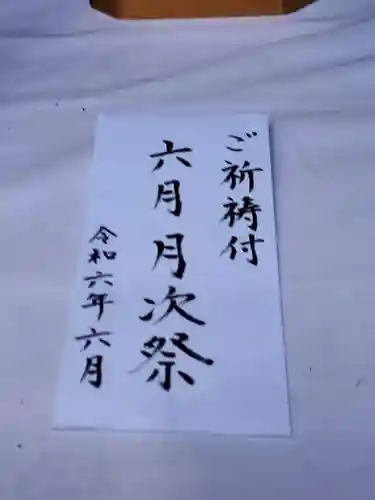 ご祈祷付
六月月次祭
令和六年六月